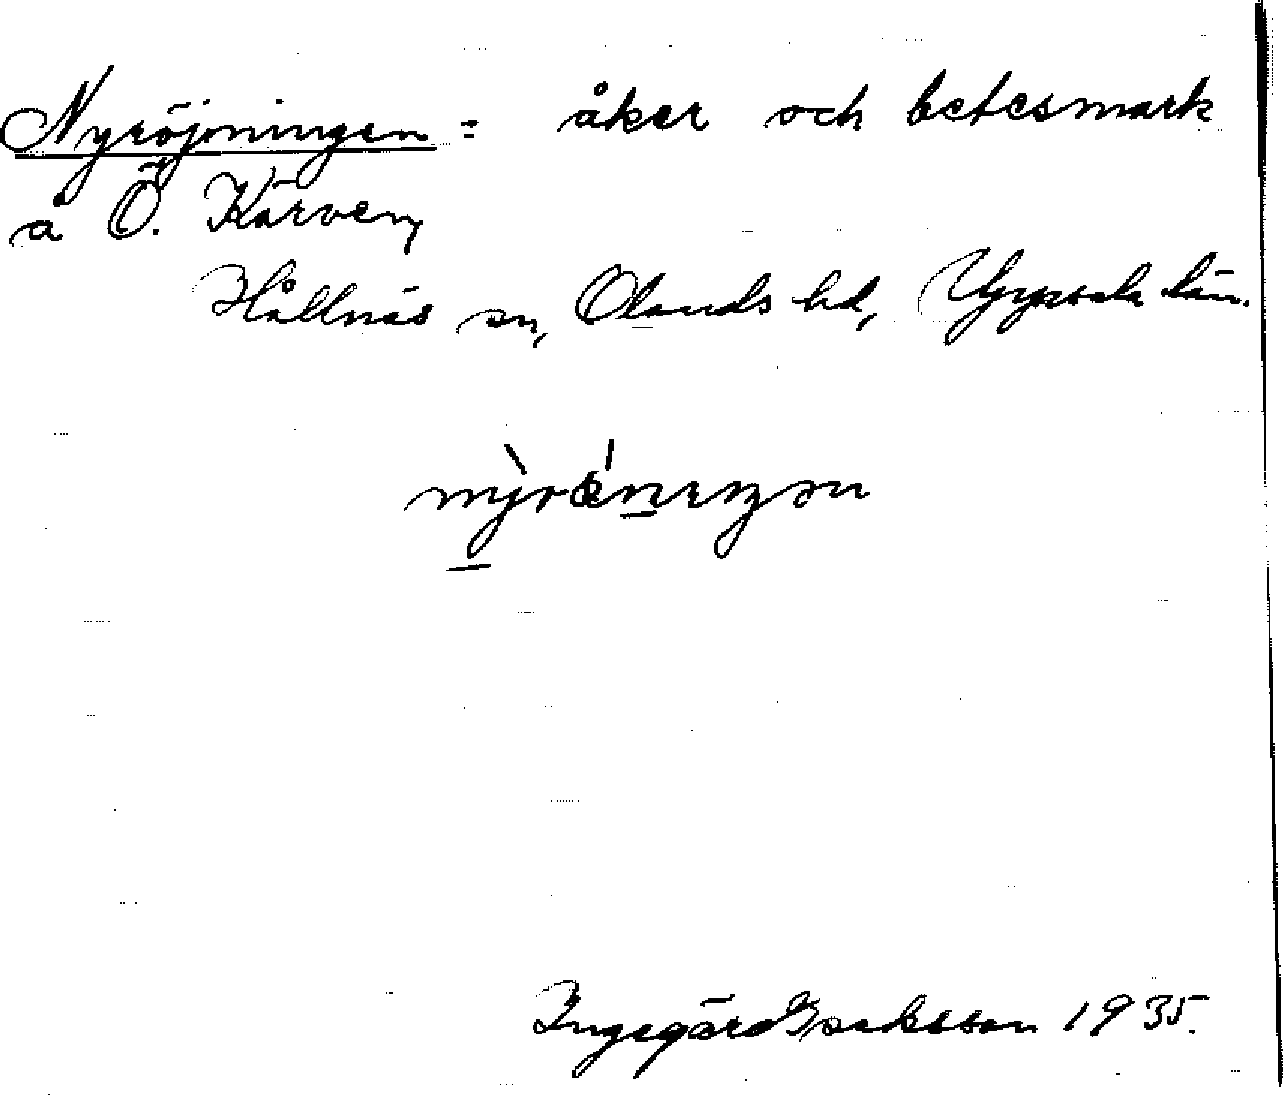 Nyröjningen = åker och betesmark
å Ö. Kärven,
Hållnäs sn, Olands hd, Uppsala län.
Ingegärd Isaksson 1935.